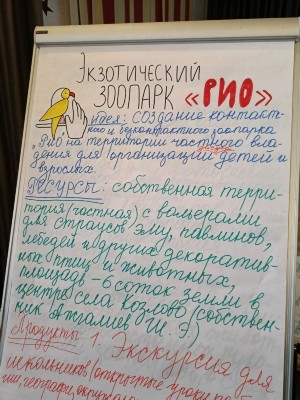 Экзотический
зоопарк «РИО»
идея: создание контакт-
ного и безконтрактного зоопарка
„Рио" на территории частного вла-
дения для организации детей и
взрослых.
Ресурсы: собственная терри-
тория (частная) с вольерами
для страусов эму, павлинов,
лебедей и других декоратив-
ных птиц и животных,
площадь - 6 соток земли в
центре села Козлово (собствен-
ник Джалиев И. Э)
Продукты 1. Экскурсия для
школьников (открытые уроки по
гии, географи, окружа